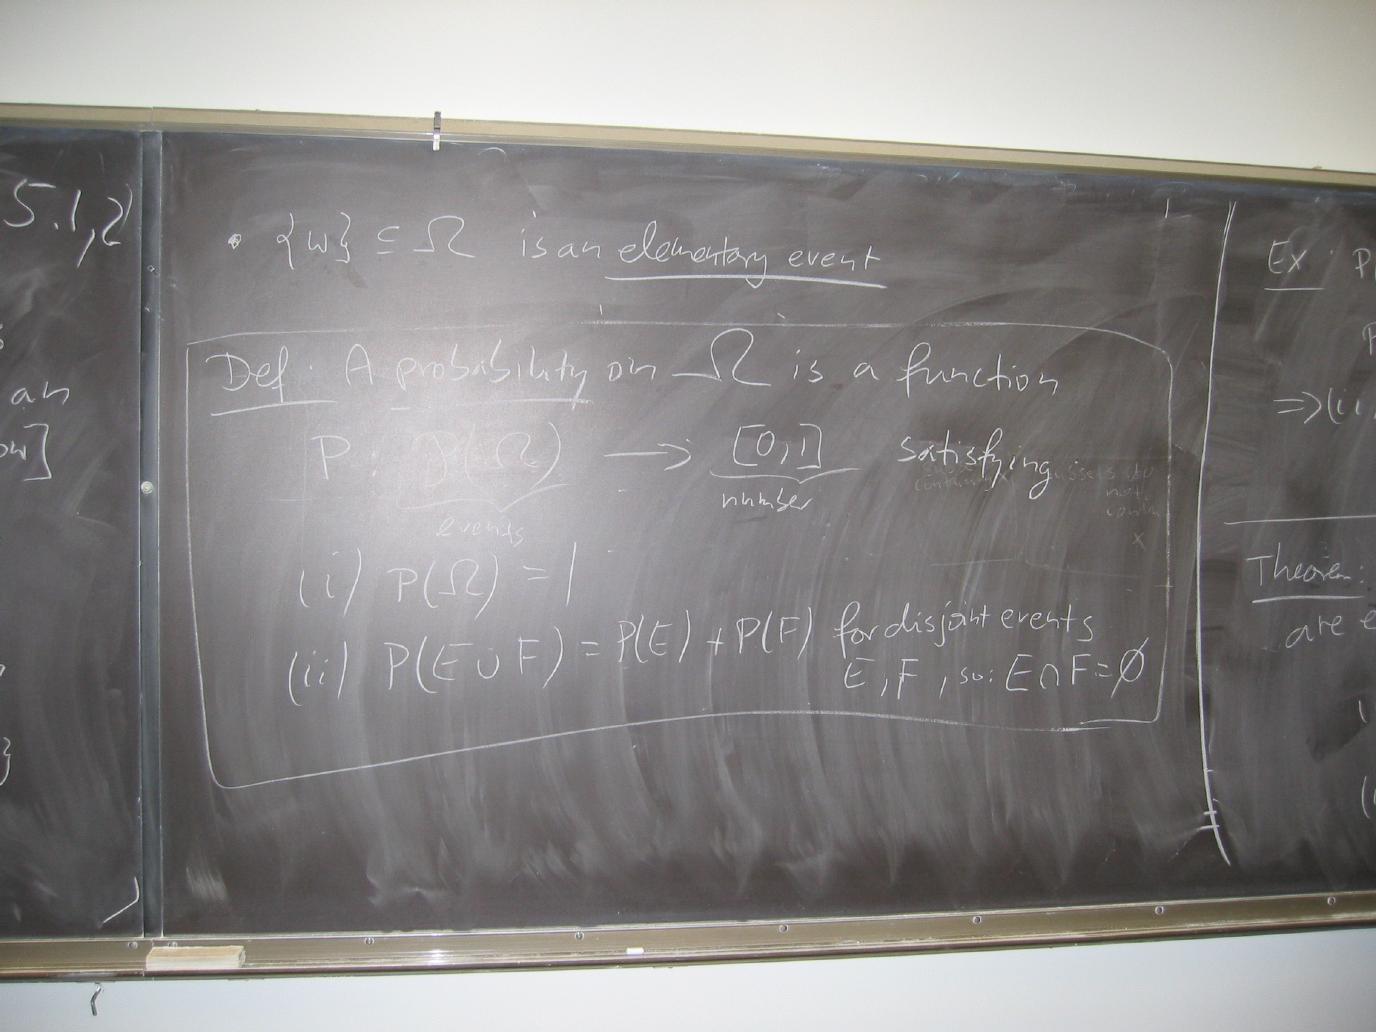 5.1,2
an
ow]
}
• {w} ⊆ Ω is an elementary event
Def. A probability on Ω is a function
P: P(Ω) → [0,1] satisfying
events number
(i) P(Ω) = 1
(ii) P(E ∪ F) = P(E) + P(F) for disjoint events
E, F, so: E ∩ F = ∅
Ex: P
P
⇒ (ii
Theorem:
are e